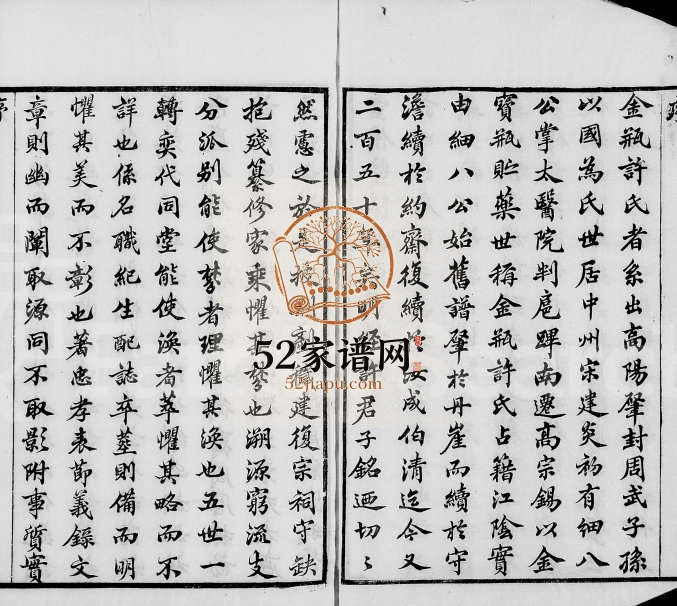 序
金瓶許氏者系出高陽肇封周武子孫
以國為氏世居中州宋建炎初有細八
公掌太醫院判扈蹕南遷高宗錫以金
寶瓶貯藥世稱金瓶許氏占籍江陰實
由細八公始舊譜肇於丹崖而續於守
澹續於約齋復續於汝成伯清迄今又
二百五十 君子銘迺切〻
然憲之於是 建復宗祠守缺
抱殘纂修家乘懼其棼也溯源窮流支
分派别能使棼者理懼其渙也五世一
轉奕代同堂能使渙者萃懼其略而不
詳也係名職紀生配誌卒塟則備而明
懼其美而不彰也著忠孝表節義錄文
章則幽而闡取源同不取影附事質實
序
52家谱网
52jiapu.com